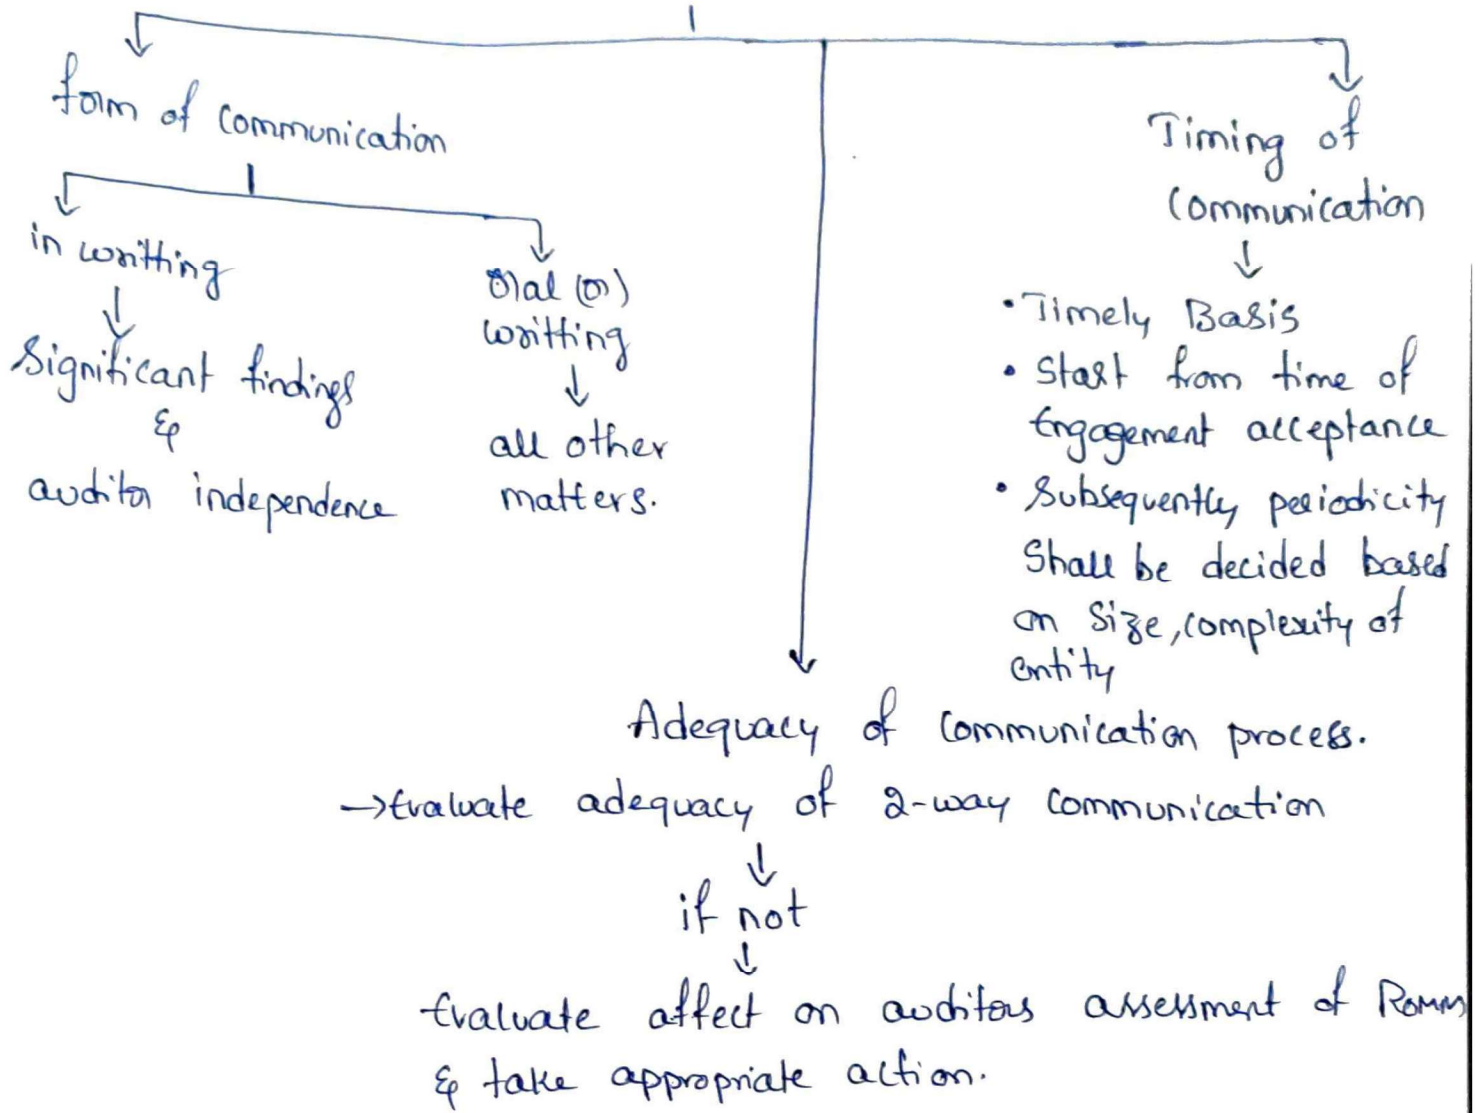 form of communication
in writting
Significant findings
&
auditor independence
Oral (or)
writting
all other
matters.
Timing of
Communication
• Timely Basis
• Start from time of
Engagement acceptance
• Subsequently periodicity
Shall be decided based
on Size, complexity of
entity
Adequacy of communication process.
→ Evaluate adequacy of 2-way communication
if not
Evaluate affect on auditors assessment of Romm
& take appropriate action.